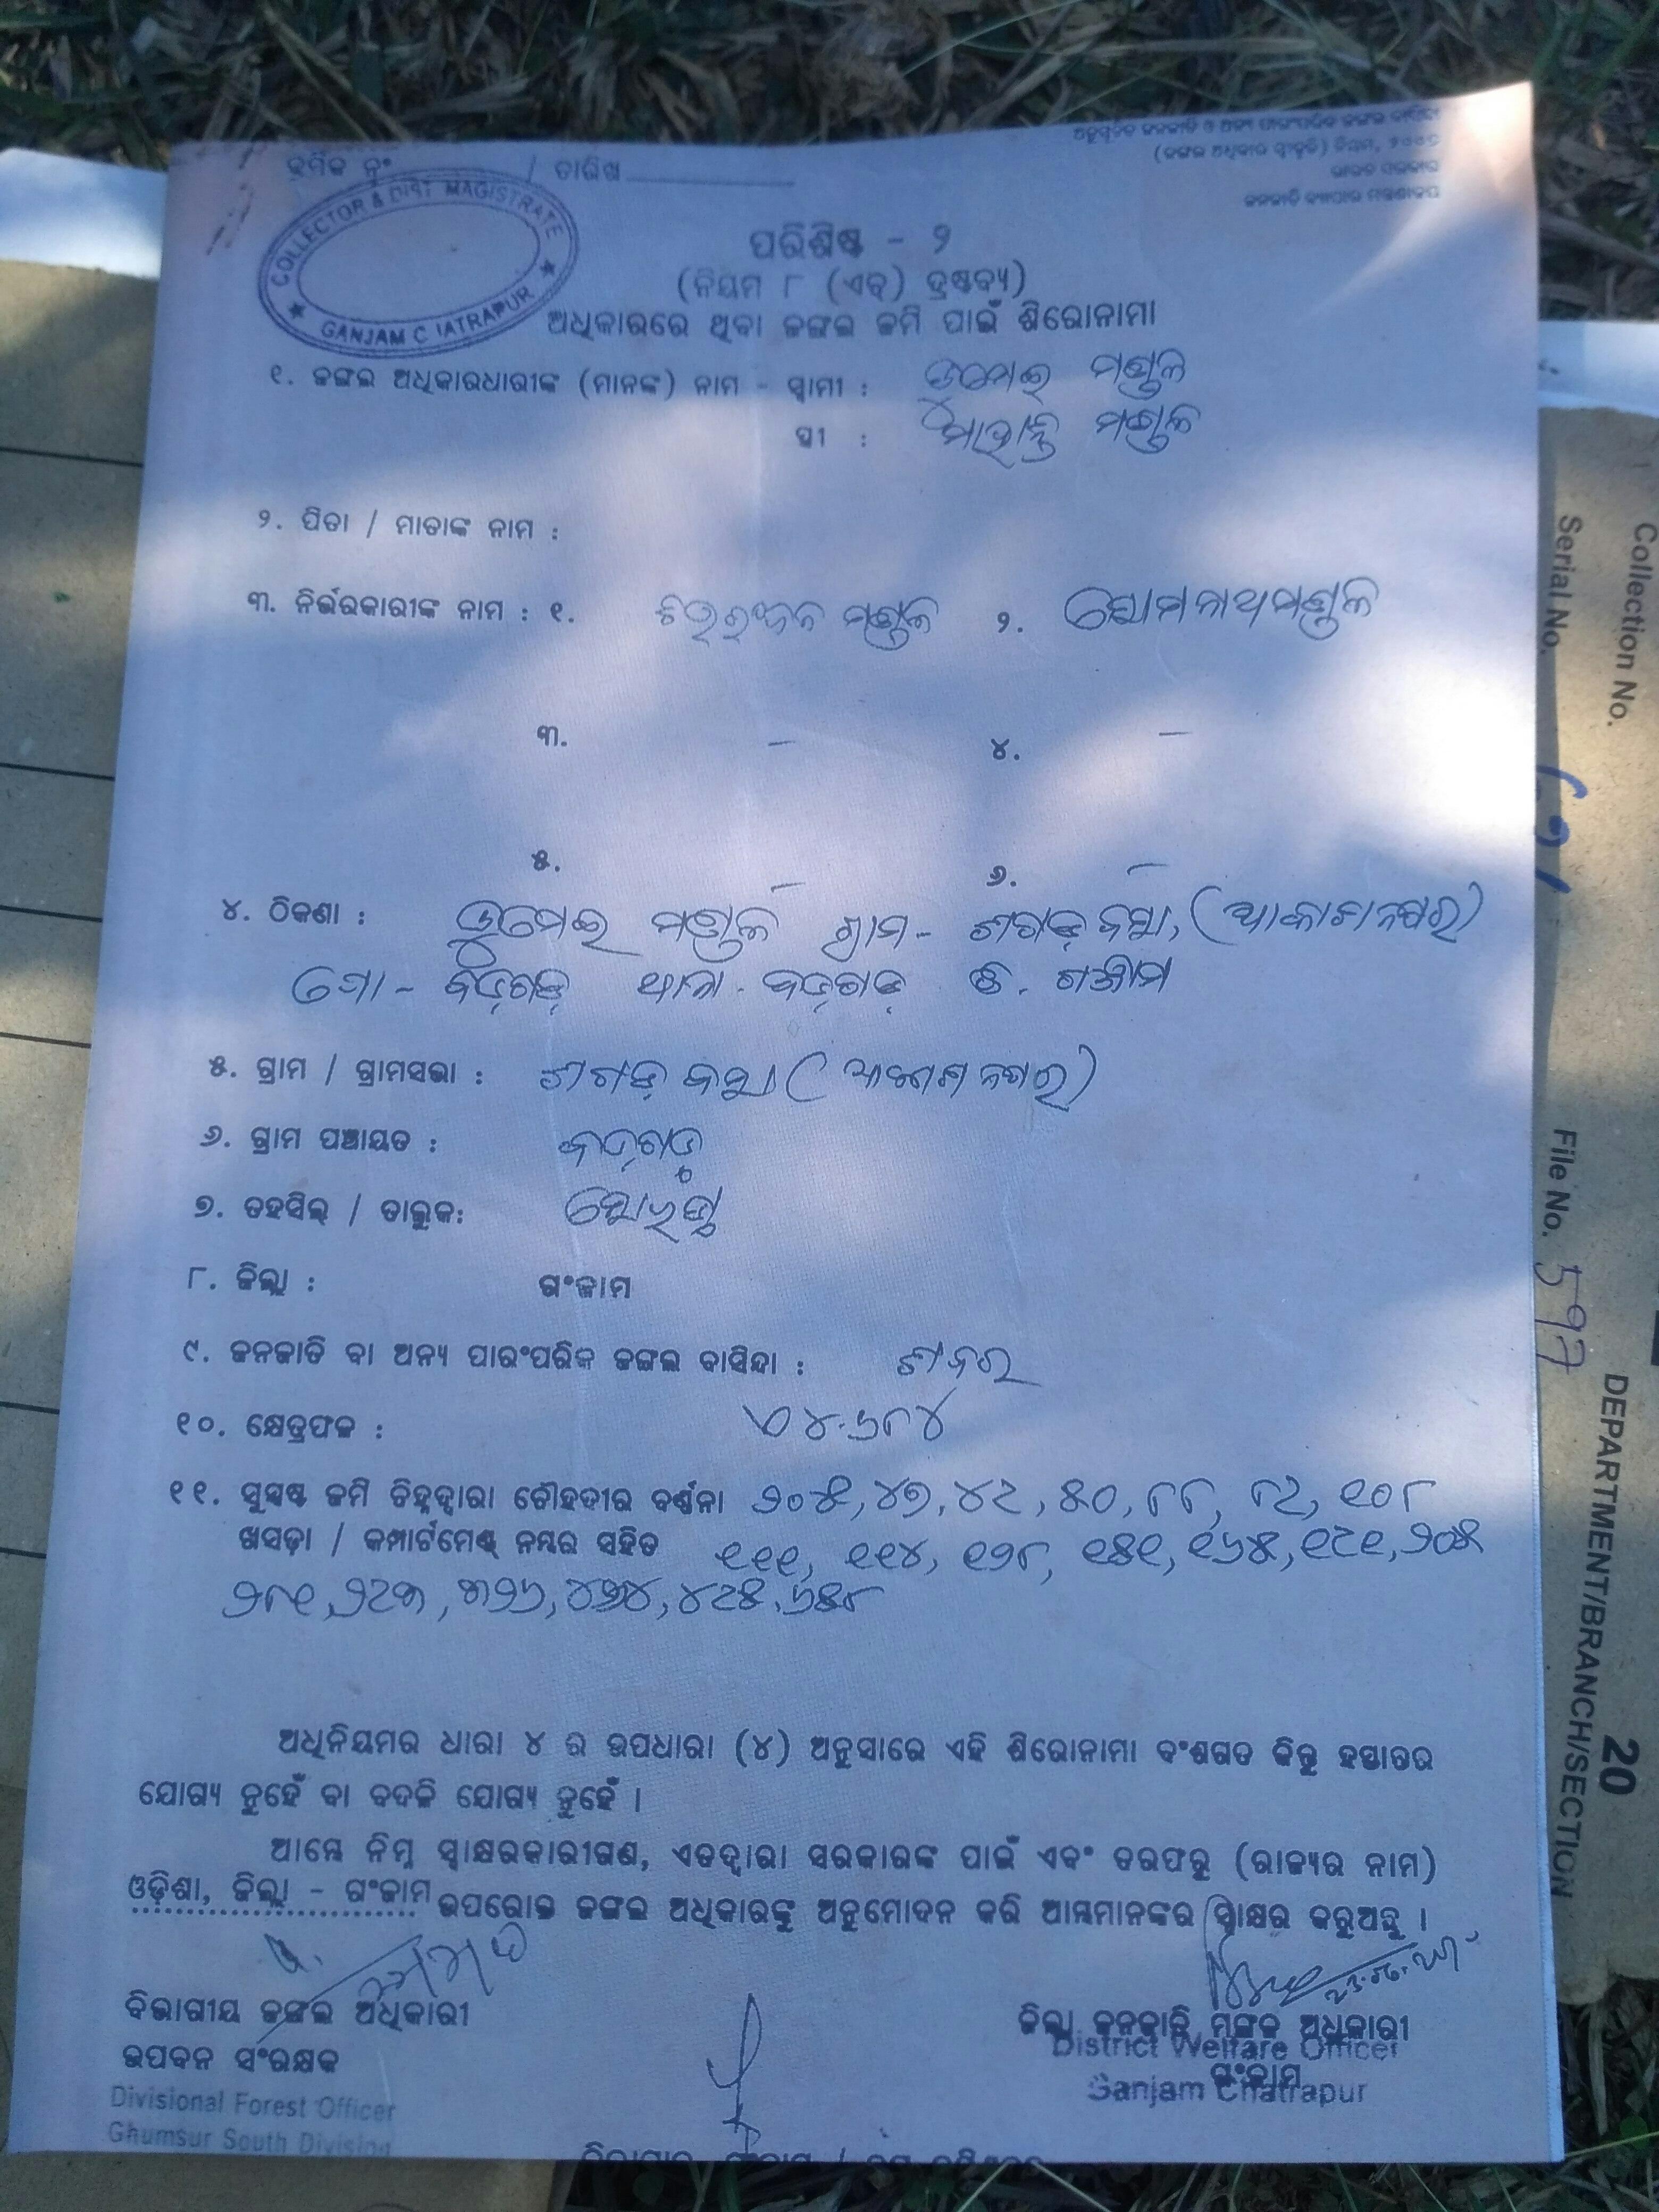 କ୍ରମିକ ନଂ / ତାରିଖ
ଅନୁସୂଚିତ ଜନଜାତି ଓ ଅନ୍ୟ ପାରଂପରିକ ଜଙ୍ଗଲ ବାସିନ୍ଦା
(ଜଙ୍ଗଲ ଅଧିକାର ସ୍ୱୀକୃତି) ନିୟମ, ୨୦୦୭
ଭାରତ ସରକାର
ଜନଜାତି ବ୍ୟାପାର ମନ୍ତ୍ରଣାଳୟ
COLLECTOR & DIST MAGISTRATE
GANJAM C IATRAPUR
ପରିଶିଷ୍ଟ - ୨
(ନିୟମ ୮ (ଏଚ୍) ଦ୍ରଷ୍ଟବ୍ୟ)
ଅଧିକାରରେ ଥିବା ଜଙ୍ଗଲ ଜମି ପାଇଁ ଶିରୋନାମା
୧. ଜଙ୍ଗଲ ଅଧିକାରଧାରୀଙ୍କ (ମାନଙ୍କ) ନାମ - ସ୍ୱାମୀ : ମଣ୍ଡଳ
ସ୍ତ୍ରୀ : ମଣ୍ଡଳ
୨. ପିତା / ମାତାଙ୍କ ନାମ :
୩. ନିର୍ଭରକାରୀଙ୍କ ନାମ : ୧. ଚିତ୍ତରଞ୍ଜନ ମଣ୍ଡଳ ୨. ସୋମନାଥ ମଣ୍ଡଳ
୩. – ୪. –
୫. – ୬. –
୪. ଠିକଣା : ମଣ୍ଡଳ ଗ୍ରାମ- (ଆକାଶନଗର)
ପୋ- ବଡ଼ଗଡ଼ ଥାନା- ବଡ଼ଗଡ଼ ଜି. ଗଞ୍ଜାମ
୫. ଗ୍ରାମ / ଗ୍ରାମସଭା : (ଆକାଶନଗର)
୬. ଗ୍ରାମ ପଞ୍ଚାୟତ : ବଡ଼ଗଡ଼
୭. ତହସିଲ୍ / ତାଲୁକ: ସୋରଡ଼ା
୮. ଜିଲ୍ଲା : ଗଂଜାମ
୯. ଜନଜାତି ବା ଅନ୍ୟ ପାରଂପରିକ ଜଙ୍ଗଲ ବାସିନ୍ଦା : ଶବର
୧୦. କ୍ଷେତ୍ରଫଳ : ଏ ୪.୬୮୪
୧୧. ସୁସ୍ପଷ୍ଟ ଜମି ଚିହ୍ନଦ୍ୱାରା ଚୌହଦୀର ବର୍ଣ୍ଣନା ୨୦୫, ୪୭, ୪୯, ୫୦, ୮୮, ୯୯, ୧୦୮
ଖସଡ଼ା / କମ୍ପାର୍ଟମେଣ୍ଟ ନମ୍ବର ସହିତ ୧୧୧, ୧୧୪, ୧୨୮, ୧୫୧, ୧୬୫, ୧୯୧, ୨୦୫
୨୮୧, ୨୯୩, ୩୨୬, ୪୨୪, ୪୯୫, ୬୫୮
ଅଧିନିୟମର ଧାରା ୪ ର ଉପଧାରା (୪) ଅନୁସାରେ ଏହି ଶିରୋନାମା ବଂଶଗତ କିନ୍ତୁ ହସ୍ତାନ୍ତର
ଯୋଗ୍ୟ ନୁହେଁ ବା ବଦଳି ଯୋଗ୍ୟ ନୁହେଁ ।
ଆମ୍ଭେ ନିମ୍ନ ସ୍ୱାକ୍ଷରକାରୀଗଣ, ଏତଦ୍ୱାରା ସରକାରଙ୍କ ପାଇଁ ଏବଂ ତରଫରୁ (ରାଜ୍ୟର ନାମ)
ଓଡ଼ିଶା, ଜିଲ୍ଲା - ଗଂଜାମ ଉପରୋକ୍ତ ଜଙ୍ଗଲ ଅଧିକାରଙ୍କୁ ଅନୁମୋଦନ କରି ଆମ୍ଭମାନଙ୍କର ସ୍ୱାକ୍ଷର କରୁଅଛୁ ।
ବିଭାଗୀୟ ଜଙ୍ଗଲ ଅଧିକାରୀ
ଉପବନ ସଂରକ୍ଷକ
Divisional Forest Officer
Ghumsur South Division
ଜିଲ୍ଲା ଜନଜାତି ମଙ୍ଗଳ ଅଧିକାରୀ
District Welfare Officer
ଗଂଜାମ
Ganjam Chatrapur
Collection No.
Serial No.
File No. 597
DEPARTMENT/BRANCH/SECTION
20